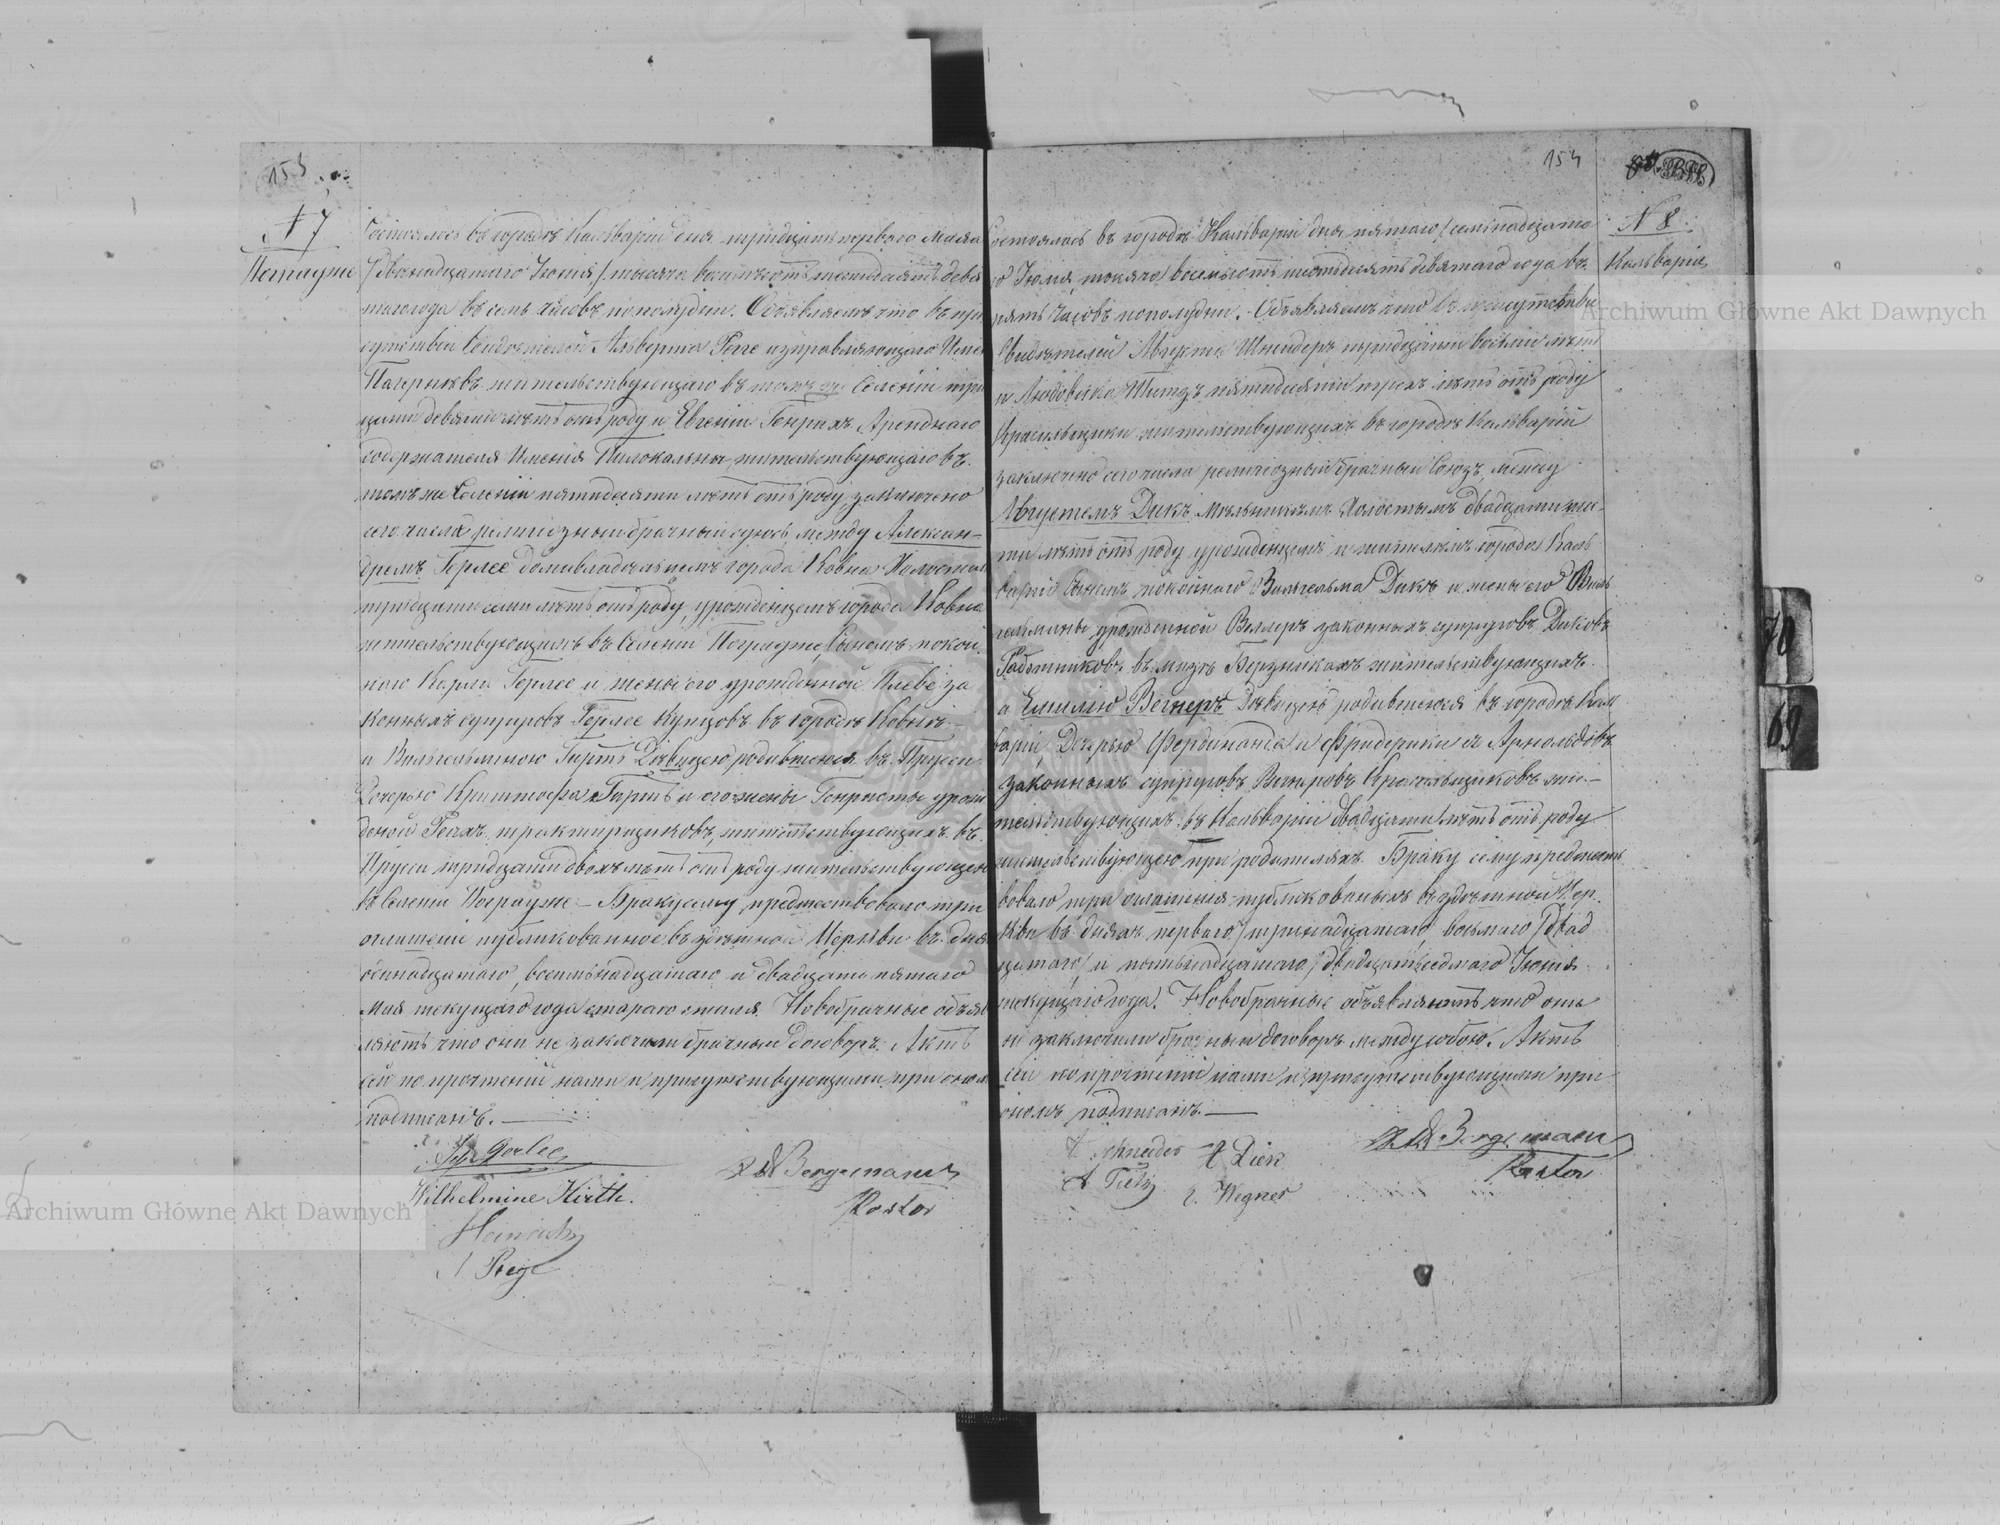 153
N 7
Пеграуже
Состоялось въ городѣ Калварiи дня тридцать перваго Мая
/двѣнадцатаго Iюня/ тысяча восемьсотъ шестьдесятъ девя
таго года въ семь часовъ пополудни. Объявляемъ что въ при
сутствiи Свидѣтелей Альберта Реге управляющаго Имен
жительствующаго въ томъ же Селенiи три
цати девяти лѣтъ отъ роду и Евгенiи Генрихъ Аренднаго
содержателя Имѣнiя жительствующаго въ
томъ же Селенiи пятидесяти лѣтъ отъ роду, заключено
сего числа религiозный брачный союзъ, между Алексан=
дремъ Герлее домовладѣльцемъ города Ковна Холостым
тридцати семи лѣтъ отъ роду, урожденцемъ города Ковна
жительствующимъ въ Селенiи Пограуже, Сыномъ покой
наго Карла Герлее и жены его урожденной Плебе за
конныхъ супруговъ Герлее Купцовъ въ городѣ Ковнѣ —
и Вильгельминою Гиртъ Дѣвицею родившеюся въ Прусiи
Дочерью Криштофа Гиртъ и его жены Генриеты урож
деной трактирщиковъ, жительствующихъ въ
Прусiи тридцати двохъ лѣтъ отъ роду жительствующею
въ Селенiи Пограуже — Браку сему предшествовало три
оглашенiе публикованное въ здѣшной Церкви въ дня
одинадцатаго, восемьнадцатаго и двадцати пятаго
Мая текущаго года стараго стиля. Новобрачные объяв
ляютъ что они не заключили брачный договоръ. Актъ
сей по прочтенiй нами и присутствующими при ономъ
подписанъ. —
Gerlee
Wilhelmine Hirth.
Heinrich
A Rege
Bergemann
Pastor
154
N 8
Калварiя
Состоялось въ городѣ Калварiи дня пятаго /семьнадцата
го Iюля, тысяча восемьсотъ шестьдесятъ девятаго года въ
пять часовъ пополудни. Объявляемъ что въ присутствiи
Свидѣтелей Августа Шнейдеръ тридцати восьми лѣтъ
и Людовика Титцъ пятидесяти трехъ лѣтъ отъ роду
Красильщики жительствующихъ въ городѣ Калварiи
заключено сего числа религiозный брачный Союзъ, между
Августемъ Дикъ Мѣльникемъ Холостымъ двадцати ше-
ти лѣтъ отъ роду урожденцемъ и жителемъ города Каль
варiи Сыномъ покойнаго Вильгельма Дикъ и жены его Виль
гельмины урожденной Веллеръ законныхъ супруговъ Диковъ
Работниковъ въ мызѣ Берзникахъ жительствующихъ.
а Емилiю Вегнеръ Дѣвицею родившеюся въ городѣ Кал
варiи, Дочерью Фердинанда и Фридерики съ Арнольдовъ
законныхъ супруговъ Вегнеровъ Красильщиковъ жи—
тельствующихъ въ Кальварiи двадцати лѣтъ отъ роду
жительствующею при родителяхъ. Браку сему предшест
вовало три оглашенiя публикованыхъ въ здѣшной Цер
кви въ дняхъ перваго /тринадцатаго, восьмаго /двад
цатаго/ и пятьнадцатаго /двадцать седмаго Iюня
текущаго года. Новобрачные объявляютъ что они
не заключили брачный договоръ между собою. Актъ
сей по прочтенiи нами и присутствующими при
ономъ подписанъ. —
A Schneider A Dick
A Tietz E. Wegner
Bergemann
Pastor
70
69
Archiwum Główne Akt Dawnych
Archiwum Główne Akt Dawnych